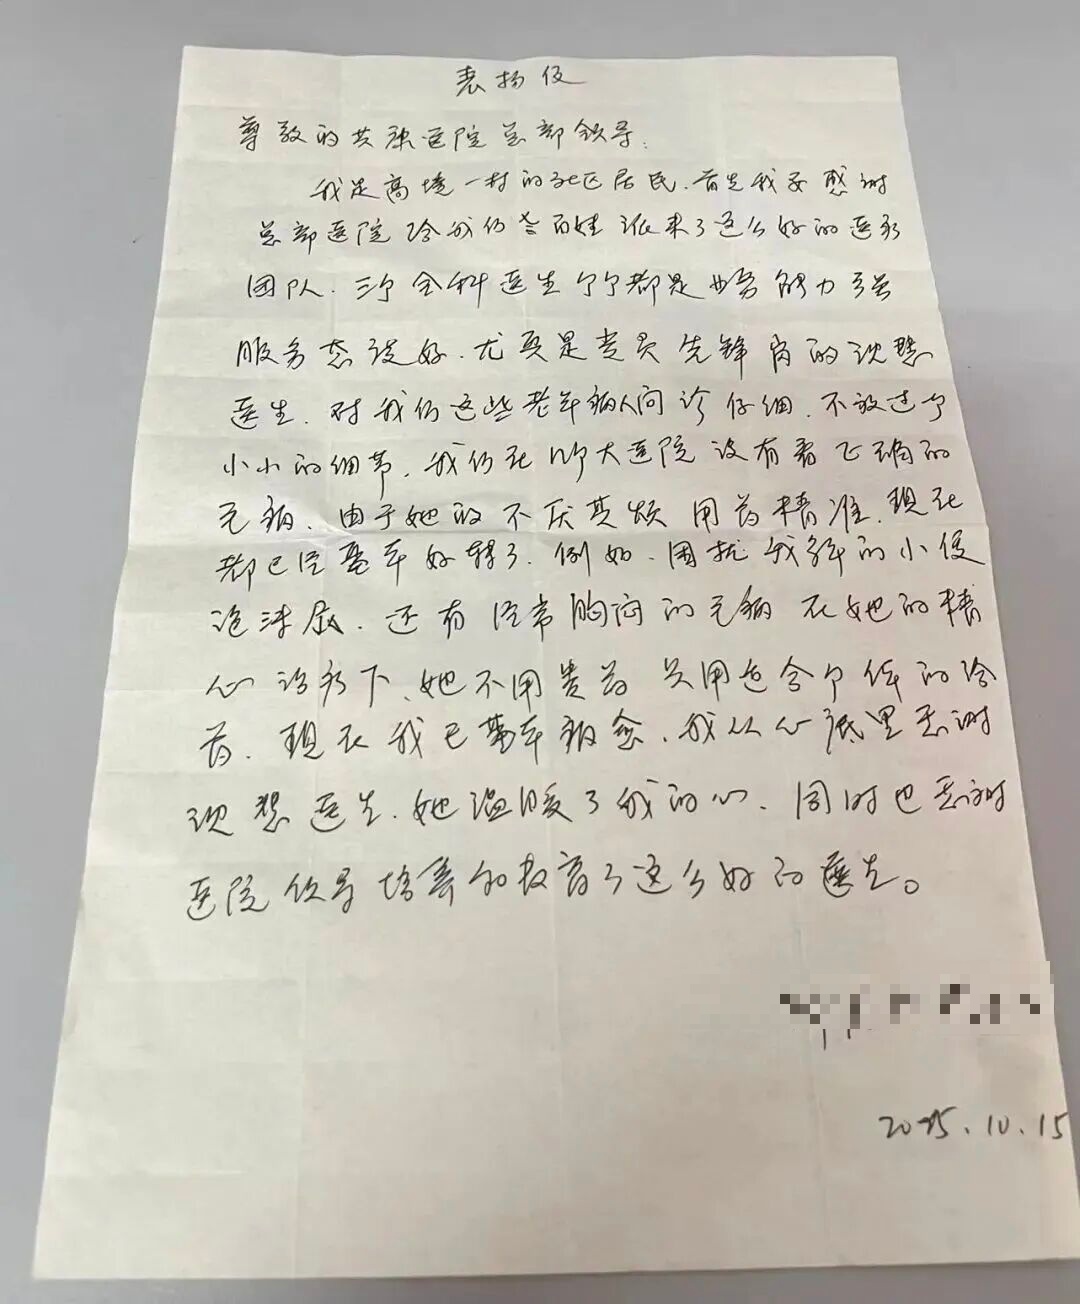 表扬信
尊敬的共康医院总部领导:
我是高境一村的社区居民.首先我要感谢
总部医院给我们老百姓派来了这么好的医疗
团队.三个全科医生个个都是业务能力强
服务态度好.尤其是党员先锋岗的沈慧
医生.对我们这些老年病人问诊仔细.不放过一个
小小的细节.我们在 大医院没有看正确的
毛病.由于她的不厌其烦用药精准.现在
都已经基本好转了.例如.困扰我 的小便
泡沫 .还有经常胸闷的毛病在她的精
心诊疗下、她不用贵药只用适合个体的给
药.现在我已基本病愈.我从心底里感谢
沈慧医生.她温暖了我的心.同时也感谢
医院领导培养和教育了这么好的医生。
2025.10.15